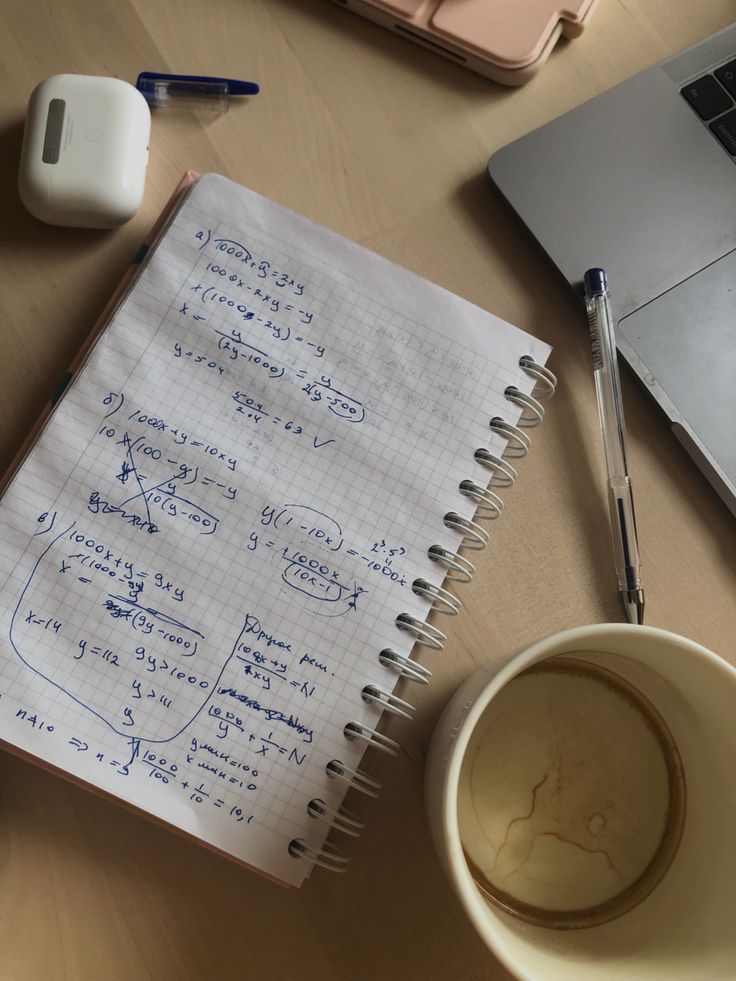 а) 1000x+y=2xy
1000x-2xy=-y
x(1000-2y)=-y
x = y/(2y-1000) = y/2(y-500)
y=504
504/2·4 = 63 ✓
б) 1000x+y=10xy
10x(100-y)=-y
y/10(y-100)
y(1-10x)=-1000x
2³·5³
y = +1000x/(10x-1)
в) 1000x+y=9xy
x(1000-9y)
x = y/(9y-1000)
x=14
y=112
9y>1000
y>111
y
Другое реш.
1000x+y/xy = N
1000/y + 1/x = N
y мин=100
x мин=10
n≠10
=> n=9
1000/100 + 1/10 = 10,1
fn
control